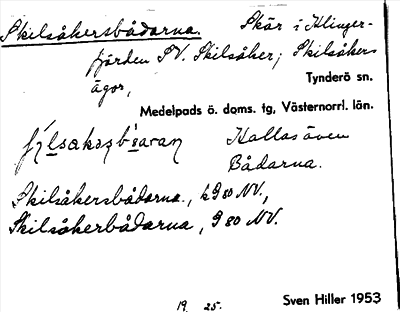 Skilsåkersbådarna. Skär i Klinger-
fjärden SV. Skilsåker; Skilsåkers
ägor,
Tynderö sn.
Medelpads ö. doms. tg, Västernorrl. län.
Kallas även
Bådarna.
Skilsåkersbådarna, k 980 NV.,
Skilsåkerbådarna, 980 NV.
19 25. Sven Hiller 1953